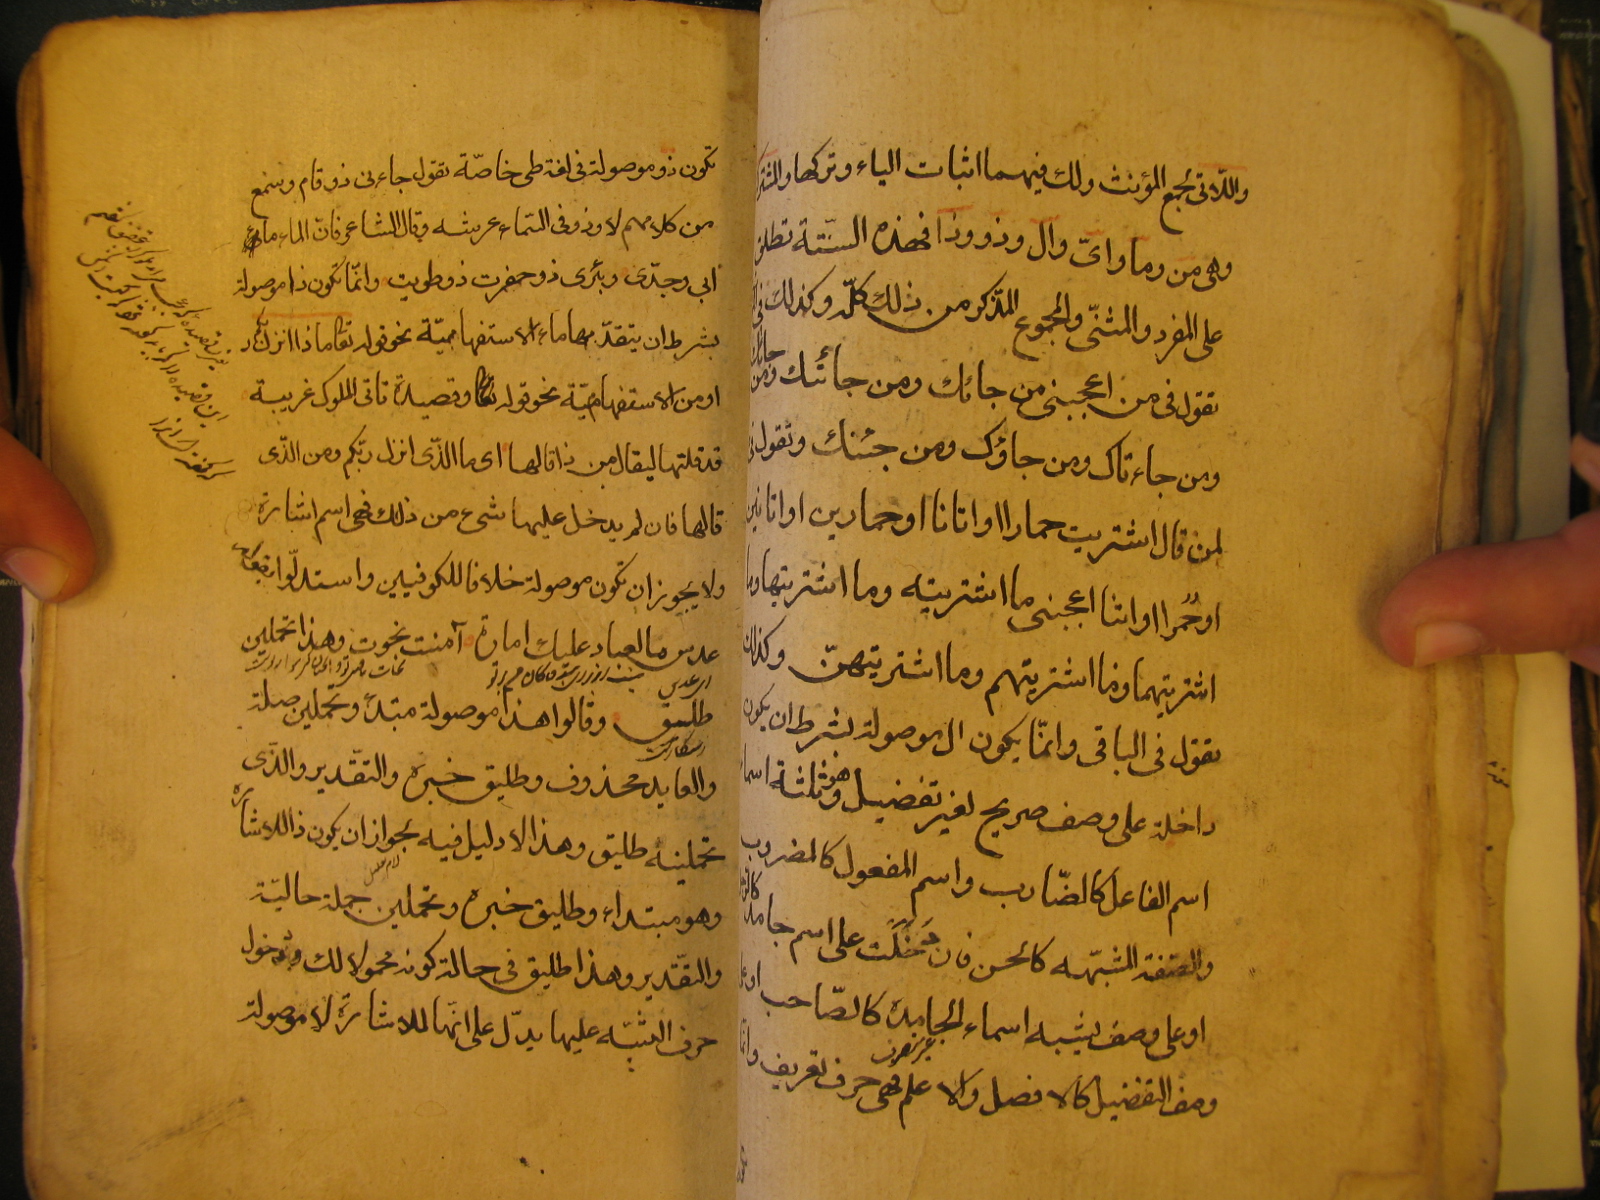 واللاتي لجمع المؤنث ولك فيهما اثبات الياء وتركها والمشترك
وهي من وما واىّ وال وذو وذا فهذه الستّة تطلق
على المفرد والمثنّى والمجموع المذكر من ذلك كلّه وكذلك
تقول فى من اعجبنى من جائك ومن جائتك ومن جائاك
ومن جاءتاك ومن جاؤك ومن جئنك وتقول فى
لمن قال اشتريت حمارا او اتانا او حمارين او اتانين
او حُمُرا او اتنا اعجبنى ما اشتريته وما اشتريتها وما
اشتريتهما وما اشتريتهم وما اشتريتهنّ وكذلك
تقول فى الباقى وانّما يكون ال موصولة بشرط ان يكون
داخلة على وصف صريح لغير تفضيل وهو ثلثة اسماء
اسم الفاعل كالضّارب واسم المفعول كالمضروب
والصفة المشبّهه كالحسن فان دَخَلَت على اسم جامد كالرجل
او على وصف يشبه اسماء الجامدة كالصّاحب او على
وصف التفضيل كالافضل والاعلم فهى حرف تعريف وانّما
تكون ذو موصولة فى لغة طى خاصّة تقول جاءنى ذو قام وسمع
من كلامهم لا وذو فى السّماء عرشه وقال الشاعر فانّ الماء ماء
ابى وجدّى وبئرى ذو حفرت ذو طويت وانّما تكون ذا موصولة
بشرط ان يتقدّمها ماء الاستفهاميّة نحو قوله تعا ماذا انزل ربكم
او من الاستفهاميّة نحو قوله وقصيدة تاتى الملوك غريبة
قد قلتها ليقال من ذا قالها اى ما الذّى انزل ربّكم ومن الذّى
قالها فان لم يدخل عليها شىء من ذلك فهى اسم اشارة
ولا يجوز ان تكون موصولة خلافا للكوفيين واستدلّوا بقوله
عدس ما لعباد عليك امارة آمنت نجوت وهذا تحملين
اى عدس
طليق وقالوا هذا موصولة مبتدء وتحملين صلة
والعايد محذوف وطليق خبره والتقدير والذّى
تحملينه طليق وهذا لا دليل فيه لجواز ان يكون ذا للاشارة
وهو مبتداء وطليق خبره وتحملين جملة حاليّة
والتقدير وهذا طليق فى حالة كونه محمولا لك ودخول
حرف التنبيه عليها يدلّ على انها للاشارة لا موصولة